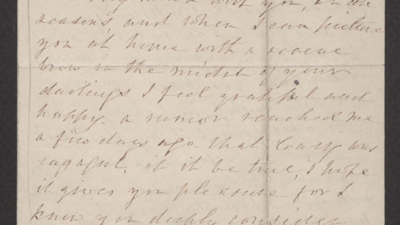 with you, at
seasons, and when I can picture
you at home with a serene
brow in the midst of your
darlings I feel grateful and
happy. a rumor reached me
a few days ago that was
engaged. if it be true, I hope
it gives you pleasure for I
know you deeply consider